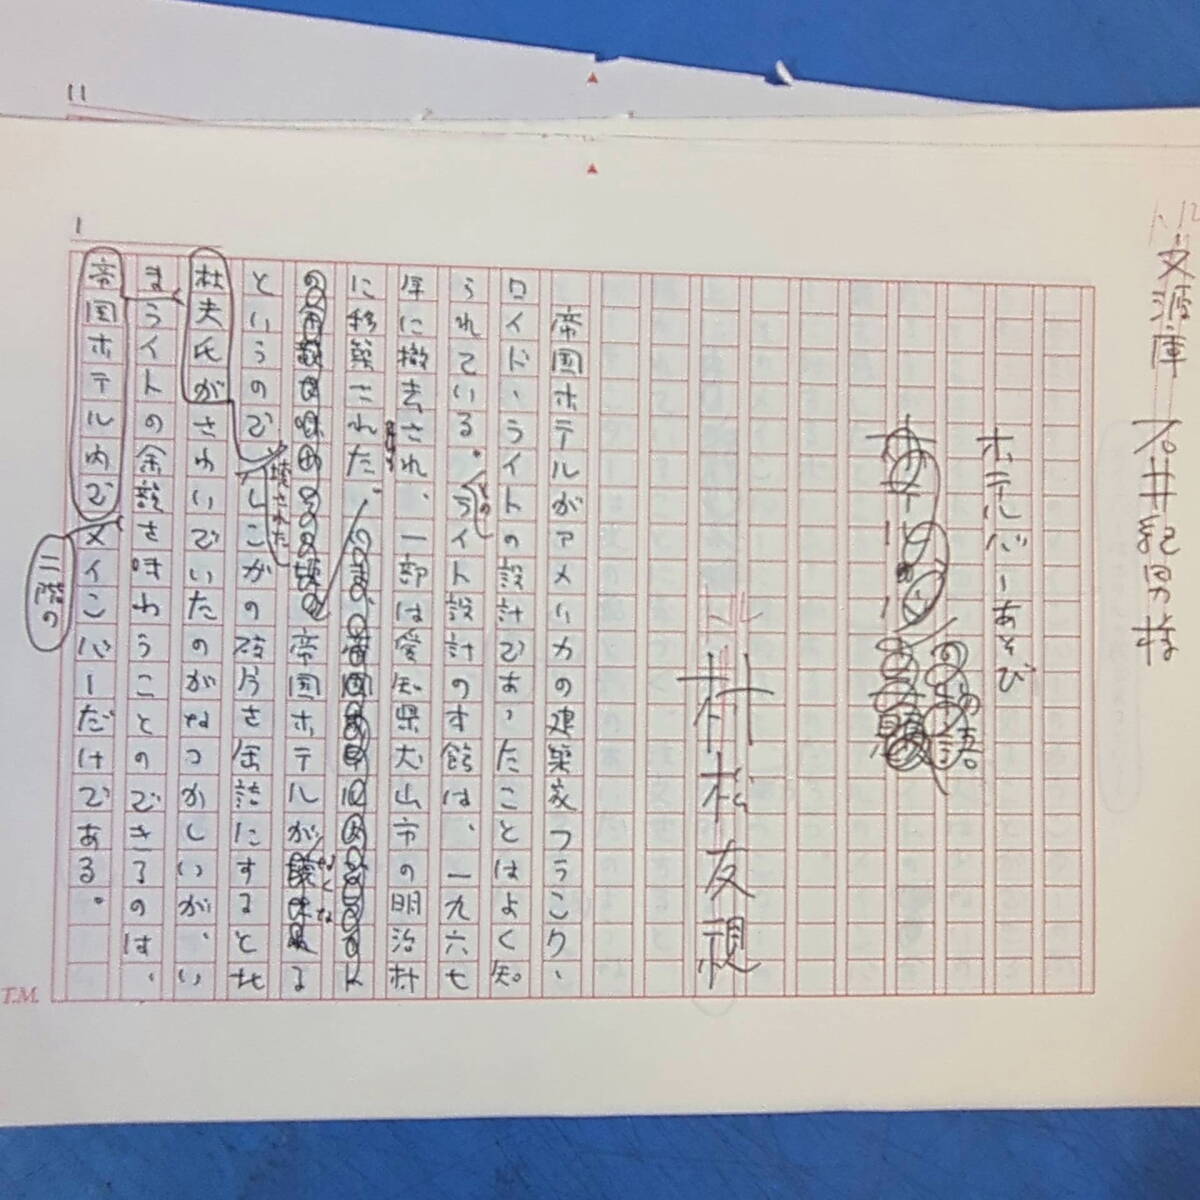 文源庫 石井紀男様
ホテルバーあそび
村松友視
帝国ホテルがアメリカの建築家フランク・
ロイド・ライトの設計であったことはよく知
られている。そのライト設計の本館は、一九六七
年に撤去され、一部は愛知県犬山市の明治村
に移築された。
帝国ホテルがなくなる
というので壊されたレンガの破片を缶詰にすると北
杜夫氏がさわいでいたのがなつかしいが、い
まライトの余韻を味わうことのできるのは、
帝国ホテル内で二階のメインバーだけである。
1
11
T.M.